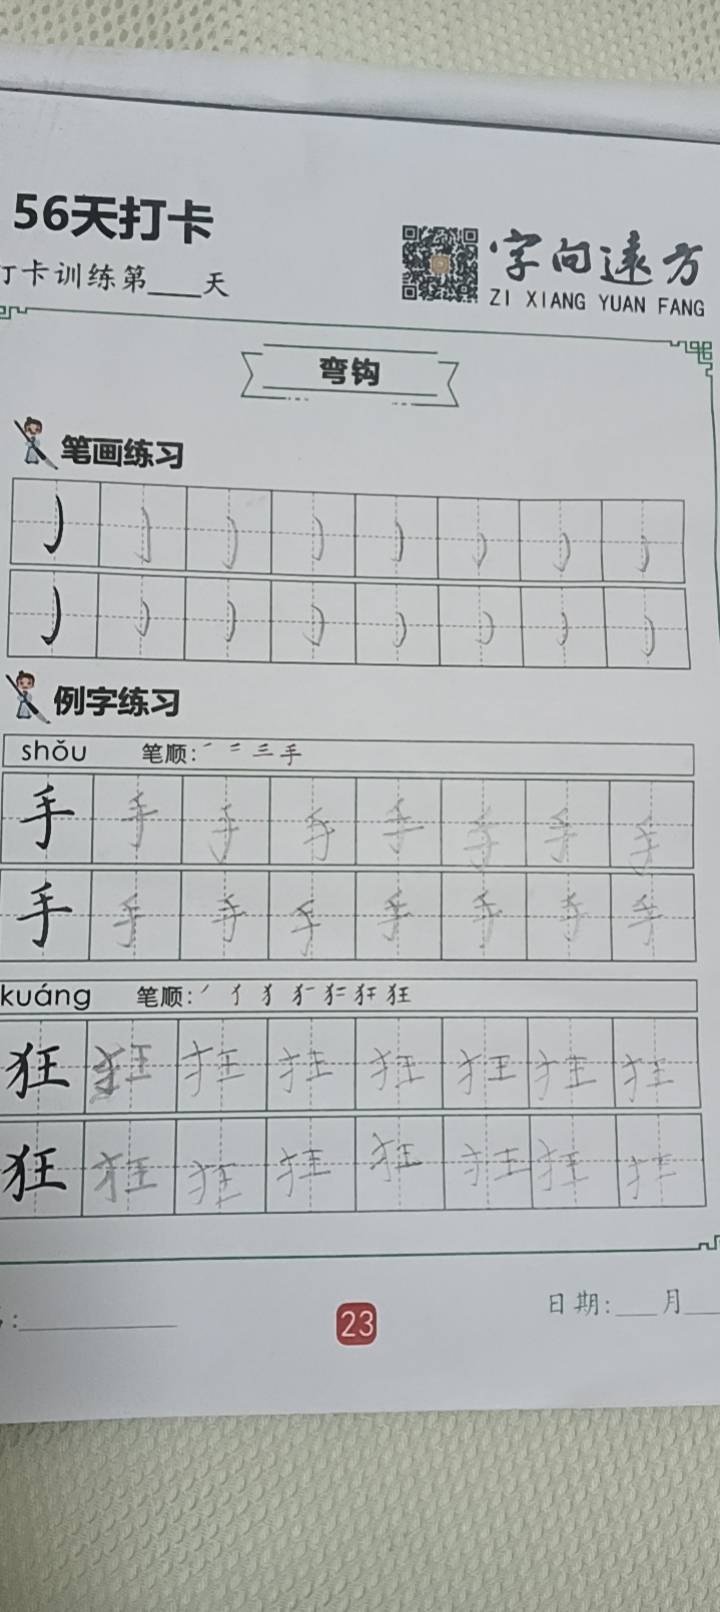 56天打卡
打卡训练第____天
字向远方
ZI XIANG YUAN FANG
弯钩
笔画练习
例字练习
shǒu 笔顺:一 二 三 手
手 手 手 手 手 手 手 手
手 手 手 手 手 手 手 手
kuáng 笔顺:
狂 狂 狂 狂 狂 狂 狂 狂
狂 狂 狂 狂 狂 狂 狂 狂
:____________ 23 日期:____月____